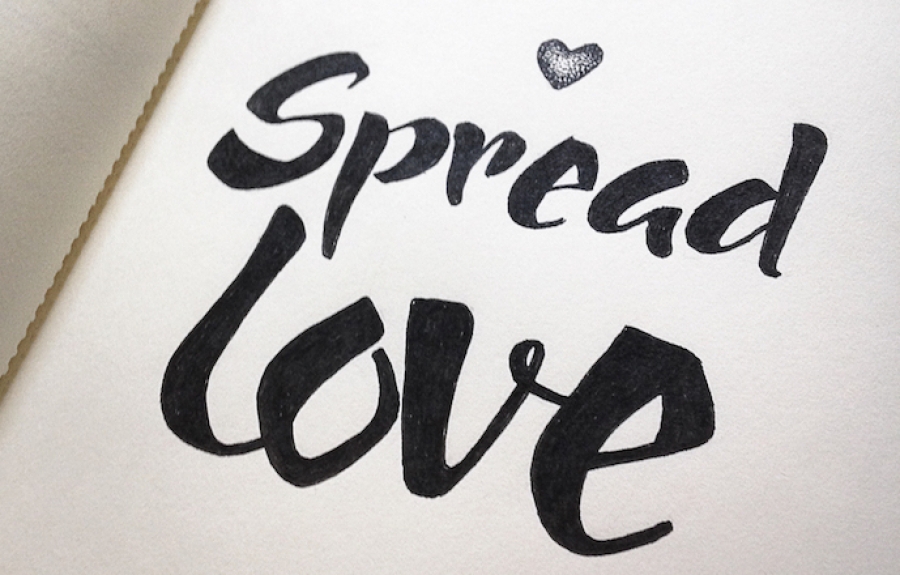 Spread
love